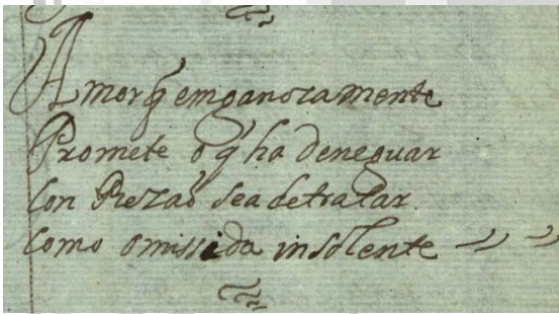 Amor q̃ emganozamente
Promete o q̃ ha deneguar
Con Prezaõ sea detratar
Como omissida insolente